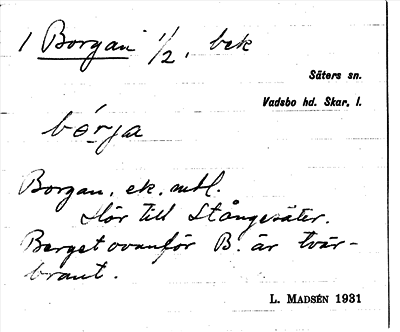 1 Borgan 1/2, bek
Säters sn.
Vadsbo hd. Skar. l.
bórja
Borgan, ek. mtl.
Hör till Stångesäter.
Berget ovanför B. är tvär-
brant.
L. MADSÉN 1931